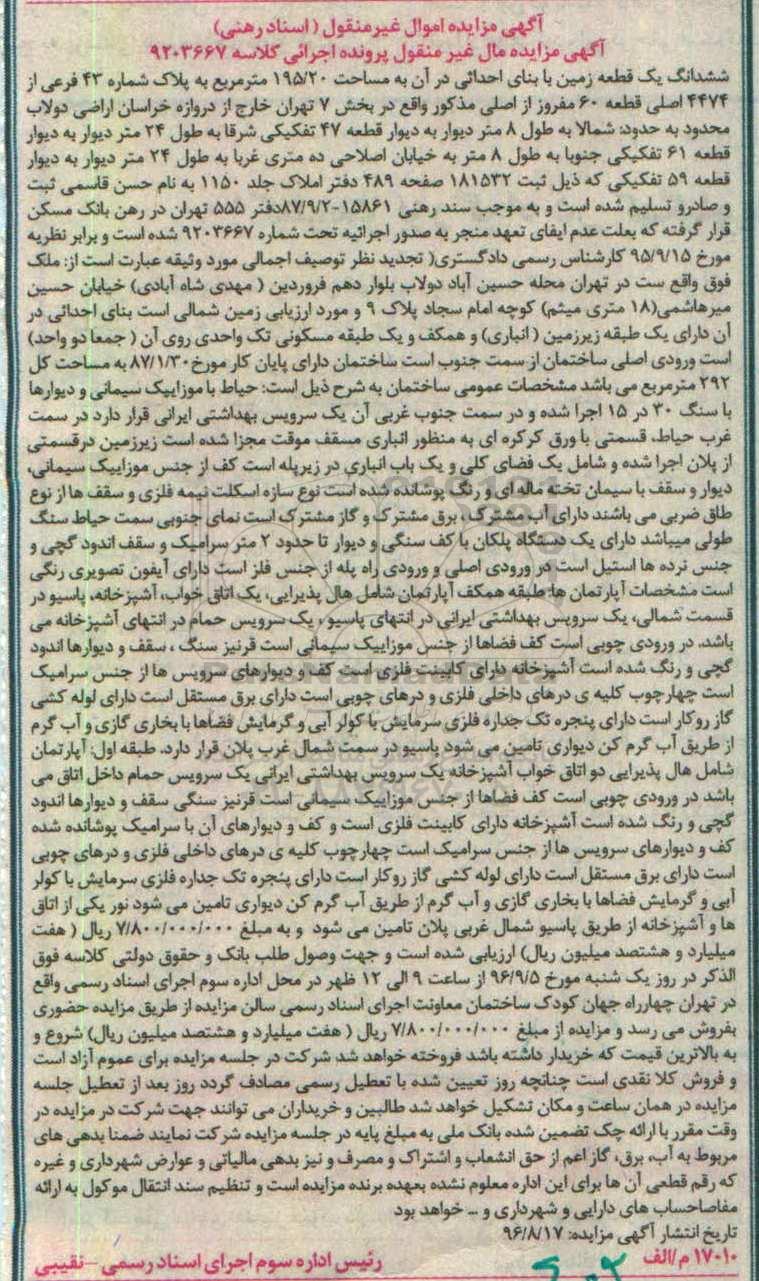 آگهی مزایده اموال غیرمنقول (اسناد رهنی)
آگهی مزایده مال غیر منقول پرونده اجرائی کلاسه ۹۲۰۳۶۶۷
ششدانگ یک قطعه زمین با بنای احداثی در آن به مساحت ۱۹۵/۲۰ مترمربع به پلاک شماره ۴۳ فرعی از
۴۴۷۴ اصلی قطعه ۶۰ مفروز از اصلی مذکور واقع در بخش ۷ تهران خارج از دروازه خراسان اراضی دولاب
محدود به حدود: شمالا به طول ۸ متر دیوار به دیوار قطعه ۴۷ تفکیکی شرقا به طول ۲۴ متر دیوار به دیوار
قطعه ۶۱ تفکیکی جنوبا به طول ۸ متر به خیابان اصلاحی ده متری غربا به طول ۲۴ متر دیوار به دیوار
قطعه ۵۹ تفکیکی که ذیل ثبت ۱۸۱۵۳۲ صفحه ۴۸۹ دفتر املاک جلد ۱۱۵۰ به نام حسن قاسمی ثبت
و صادرو تسلیم شده است و به موجب سند رهنی ۱۵۸۶۱-۸۷/۹/۲دفتر ۵۵۵ تهران در رهن بانک مسکن
قرار گرفته که بعلت عدم ایفای تعهد منجر به صدور اجرائیه تحت شماره ۹۲۰۳۶۶۷ شده است و برابر نظریه
مورخ ۹۵/۹/۱۵ کارشناس رسمی دادگستری( تجدید نظر توصیف اجمالی مورد وثیقه عبارت است از: ملک
فوق واقع ست در تهران محله حسین آباد دولاب بلوار دهم فروردین ( مهدی شاه آبادی) خیابان حسین
میرهاشمی(۱۸ متری میثم) کوچه امام سجاد پلاک ۹ و مورد ارزیابی زمین شمالی است بنای احداثی در
آن دارای یک طبقه زیرزمین ( انباری) و همکف و یک طبقه مسکونی تک واحدی روی آن ( جمعا دو واحد)
است ورودی اصلی ساختمان از سمت جنوب است ساختمان دارای پایان کار مورخ۸۷/۱/۳۰ به مساحت کل
۲۹۲ مترمربع می باشد مشخصات عمومی ساختمان به شرح ذیل است: حیاط با موزاییک سیمانی و دیوارها
با سنگ ۳۰ در ۱۵ اجرا شده و در سمت جنوب غربی آن یک سرویس بهداشتی ایرانی قرار دارد در سمت
غرب حیاط، قسمتی با ورق کرکره ای به منظور انباری مسقف موقت مجزا شده است زیرزمین درقسمتی
از پلان اجرا شده و شامل یک فضای کلی و یک باب انباری در زیرپله است کف از جنس موزاییک سیمانی،
دیوار و سقف با سیمان تخته ماله ای و رنگ پوشانده شده است نوع سازه اسکلت نیمه فلزی و سقف ها از نوع
طاق ضربی می باشند دارای آب مشترک، برق مشترک و گاز مشترک است نمای جنوبی سمت حیاط سنگ
طولی میباشد دارای یک دستگاه پلکان با کف سنگی و دیوار تا حدود ۲ متر سرامیک و سقف اندود گچی و
جنس نرده ها استیل است در ورودی اصلی و ورودی راه پله از جنس فلز است دارای آیفون تصویری رنگی
است مشخصات آپارتمان ها: طبقه همکف آپارتمان شامل هال پذیرایی، یک اتاق خواب، آشپزخانه، پاسیو در
قسمت شمالی، یک سرویس بهداشتی ایرانی در انتهای پاسیو ، یک سرویس حمام در انتهای آشپزخانه می
باشد. در ورودی چوبی است کف فضاها از جنس موزاییک سیمانی است قرنیز سنگ ، سقف و دیوارها اندود
گچی و رنگ شده است آشپزخانه دارای کابینت فلزی است کف و دیوارهای سرویس ها از جنس سرامیک
است چهارچوب کلیه ی درهای داخلی فلزی و درهای چوبی است دارای برق مستقل است دارای لوله کشی
گاز روکار است دارای پنجره تک جداره فلزی سرمایش با کولر آبی و گرمایش فضاها با بخاری گازی و آب گرم
از طریق آب گرم کن دیواری تامین می شود پاسیو در سمت شمال غرب پلان قرار دارد. طبقه اول: آپارتمان
شامل هال پذیرایی دو اتاق خواب آشپزخانه یک سرویس بهداشتی ایرانی یک سرویس حمام داخل اتاق می
باشد در ورودی چوبی است کف فضاها از جنس موزاییک سیمانی است قرنیز سنگی سقف و دیوارها اندود
گچی و رنگ شده است آشپزخانه دارای کابینت فلزی است و کف و دیوارهای آن با سرامیک پوشانده شده
کف و دیوارهای سرویس ها از جنس سرامیک است چهارچوب کلیه ی درهای داخلی فلزی و درهای چوبی
است دارای برق مستقل است دارای لوله کشی گاز روکار است دارای پنجره تک جداره فلزی سرمایش با کولر
آبی و گرمایش فضاها با بخاری گازی و آب گرم از طریق آب گرم کن دیواری تامین می شود نور یکی از اتاق
ها و آشپزخانه از طریق پاسیو شمال غربی پلان تامین می شود و به مبلغ ۷/۸۰۰/۰۰۰/۰۰۰ ریال ( هفت
میلیارد و هشتصد میلیون ریال) ارزیابی شده است و جهت وصول طلب بانک و حقوق دولتی کلاسه فوق
الذکر در روز یک شنبه مورخ ۹۶/۹/۵ از ساعت ۹ الی ۱۲ ظهر در محل اداره سوم اجرای اسناد رسمی واقع
در تهران چهارراه جهان کودک ساختمان معاونت اجرای اسناد رسمی سالن مزایده از طریق مزایده حضوری
بفروش می رسد و مزایده از مبلغ ۷/۸۰۰/۰۰۰/۰۰۰ ریال ( هفت میلیارد و هشتصد میلیون ریال) شروع و
به بالاترین قیمت که خریدار داشته باشد فروخته خواهد شد شرکت در جلسه مزایده برای عموم آزاد است
و فروش کلا نقدی است چنانچه روز تعیین شده با تعطیل رسمی مصادف گردد روز بعد از تعطیل جلسه
مزایده در همان ساعت و مکان تشکیل خواهد شد طالبین و خریداران می توانند جهت شرکت در مزایده در
وقت مقرر با ارائه چک تضمین شده بانک ملی به مبلغ پایه در جلسه مزایده شرکت نمایند ضمنا بدهی های
مربوط به آب، برق، گاز اعم از حق انشعاب و اشتراک و مصرف و نیز بدهی مالیاتی و عوارض شهرداری و غیره
که رقم قطعی آن ها برای این اداره معلوم نشده بعهده برنده مزایده است و تنظیم سند انتقال موکول به ارائه
مفاصاحساب های دارایی و شهرداری و ... خواهد بود
تاریخ انتشار آگهی مزایده: ۹۶/۸/۱۷
۱۷۰۱۰ م/الف
رئیس اداره سوم اجرای اسناد رسمی -نقیبی